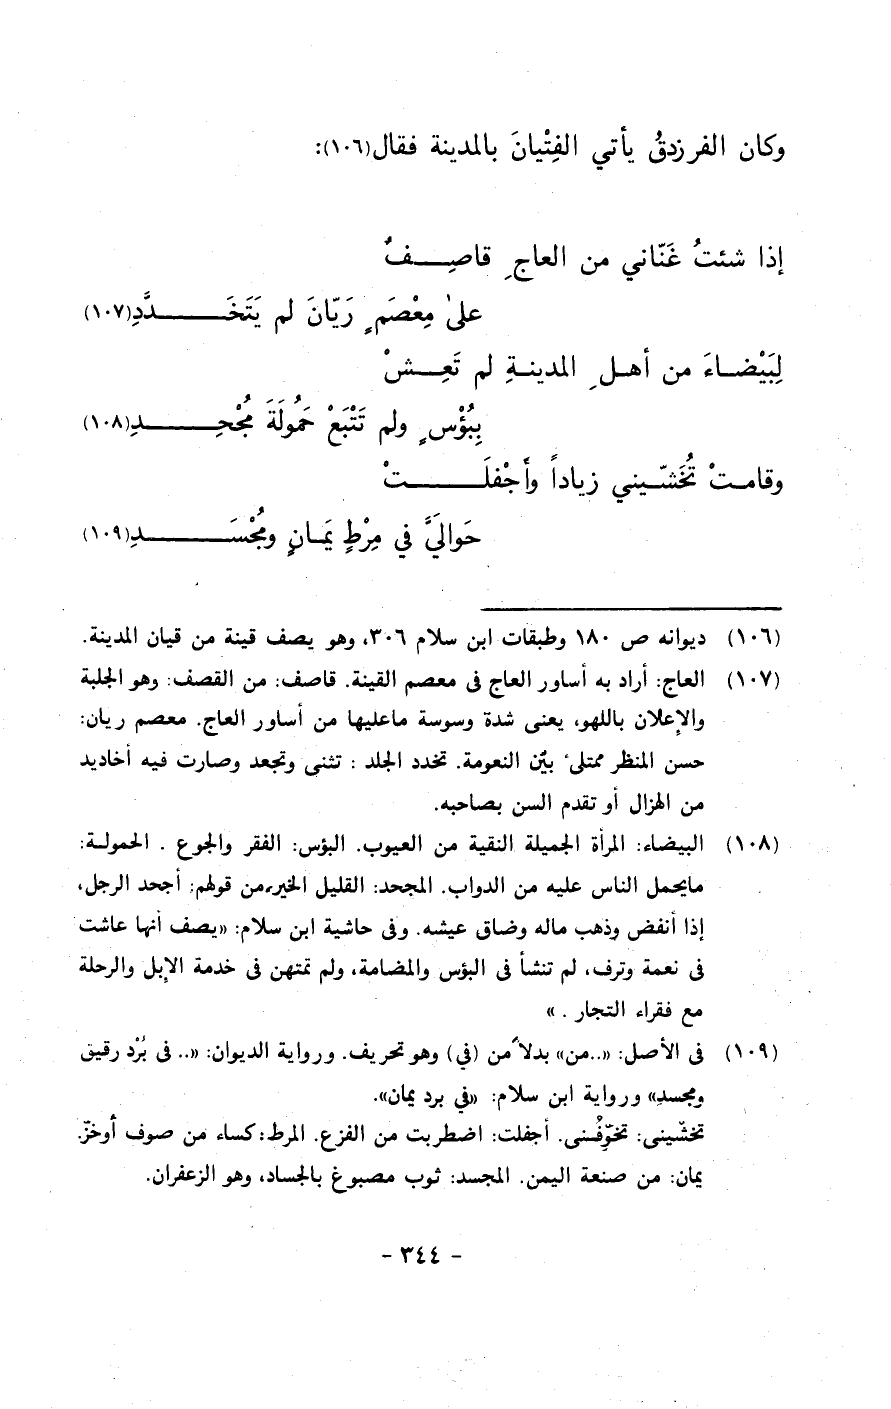 وكان الفرزدقُ يأتي الفِتْيانَ بالمدينة فقال(١٠٦):
إذا شئتُ غَنّاني من العاجِ قاصِـــفٌ
علىٰ مِعْصَمٍ رَيّانَ لم يَتَخَـــــــدَّدِ(١٠٧)
لِبَيْضـاءَ من أهـلِ المدينـةِ لم تَعِـــشْ
بِبُؤْسٍ ولم تَتْبَعْ حَمُولَةَ مُجْحِــــــدِ(١٠٨)
وقامـتْ تُخَشّـيني زياداً وأَجْفلَـــــتْ
حَوالَيَّ في مِرْطٍ يَمـانٍ ومُجْسَـــــــدِ(١٠٩)
(١٠٦) ديوانه ص ١٨٠ وطبقات ابن سلام ٣٠٦، وهو يصف قينة من قيان المدينة.
(١٠٧) العاج: أراد به أساور العاج فى معصم القينة. قاصف: من القصف: وهو الجلبة
والإعلان باللهو، يعنى شدة وسوسة ماعليها من أساور العاج. معصم ريان:
حسن المنظر ممتلىء بيّن النعومة. تخدد الجلد : تثنى وتجعد وصارت فيه أخاديد
من الهزال أو تقدم السن بصاحبه.
(١٠٨) البيضاء: المرأة الجميلة النقية من العيوب. البؤس: الفقر والجوع . الحمولـة:
مايحمل الناس عليه من الدواب. المجحد: القليل الخير،من قولهم: أجحد الرجل،
إذا أنفض وذهب ماله وضاق عيشه. وفى حاشية ابن سلام: «يصف أنها عاشت
فى نعمة وترف، لم تنشأ فى البؤس والمضامة، ولم تمتهن فى خدمة الإبل والرحلة
مع فقراء التجار . »
(١٠٩) فى الأصل: «..من» بدلاً من (في) وهو تحريف. ورواية الديوان: «.. فى بُرْد رقيق
ومجسد» ورواية ابن سلام: «في برد يمان».
تخشّينى: تخوِّفُنى. أجفلت: اضطربت من الفزع. المرط:كساء من صوف أوخزّ.
يمان: من صنعة اليمن. المجسد: ثوب مصبوغ بالجساد، وهو الزعفران.
- ٣٤٤ -